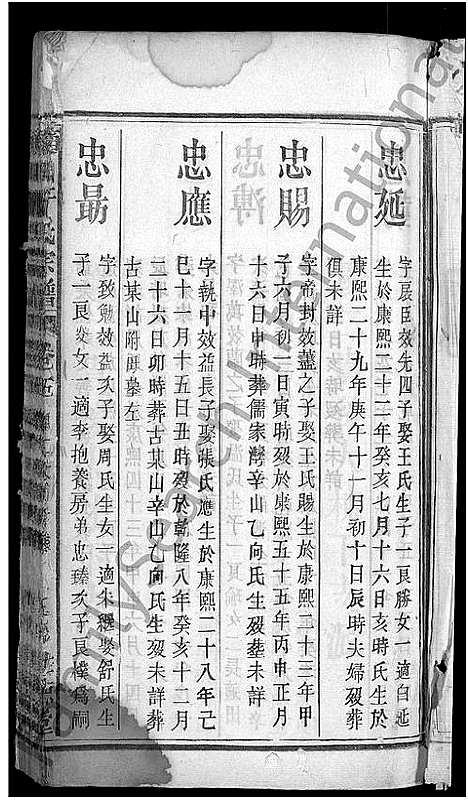 忠延
字宸臣效先四子娶王氏生子一良勝女一適白延
生於康熙二十二年癸亥七月十六日亥時氏生於
康熙二十九年庚午十一月初十日辰時夫婦歿葬
俱未詳
忠賜
字帝封效藎之子娶王氏賜生於康熙三十三年甲
子六月初二日寅時歿於康熙五十五年丙申正月
十六日申時葬儒家灣辛山乙向氏生歿葬未詳
忠應
字執中效益長子娶張氏應生於康熙二十八年己
巳十一月十五日丑時歿於乾隆八年癸亥十二月
二十六日卯時葬古某山辛山乙向氏生歿未詳葬
古某山附厥墓左
忠勗
字致勉效益次子娶周氏生女一適朱繼娶舒氏生
子一良炎女一適李抱養房弟忠臻次子良樸為嗣
氏宗譜
卷五
familysearch International